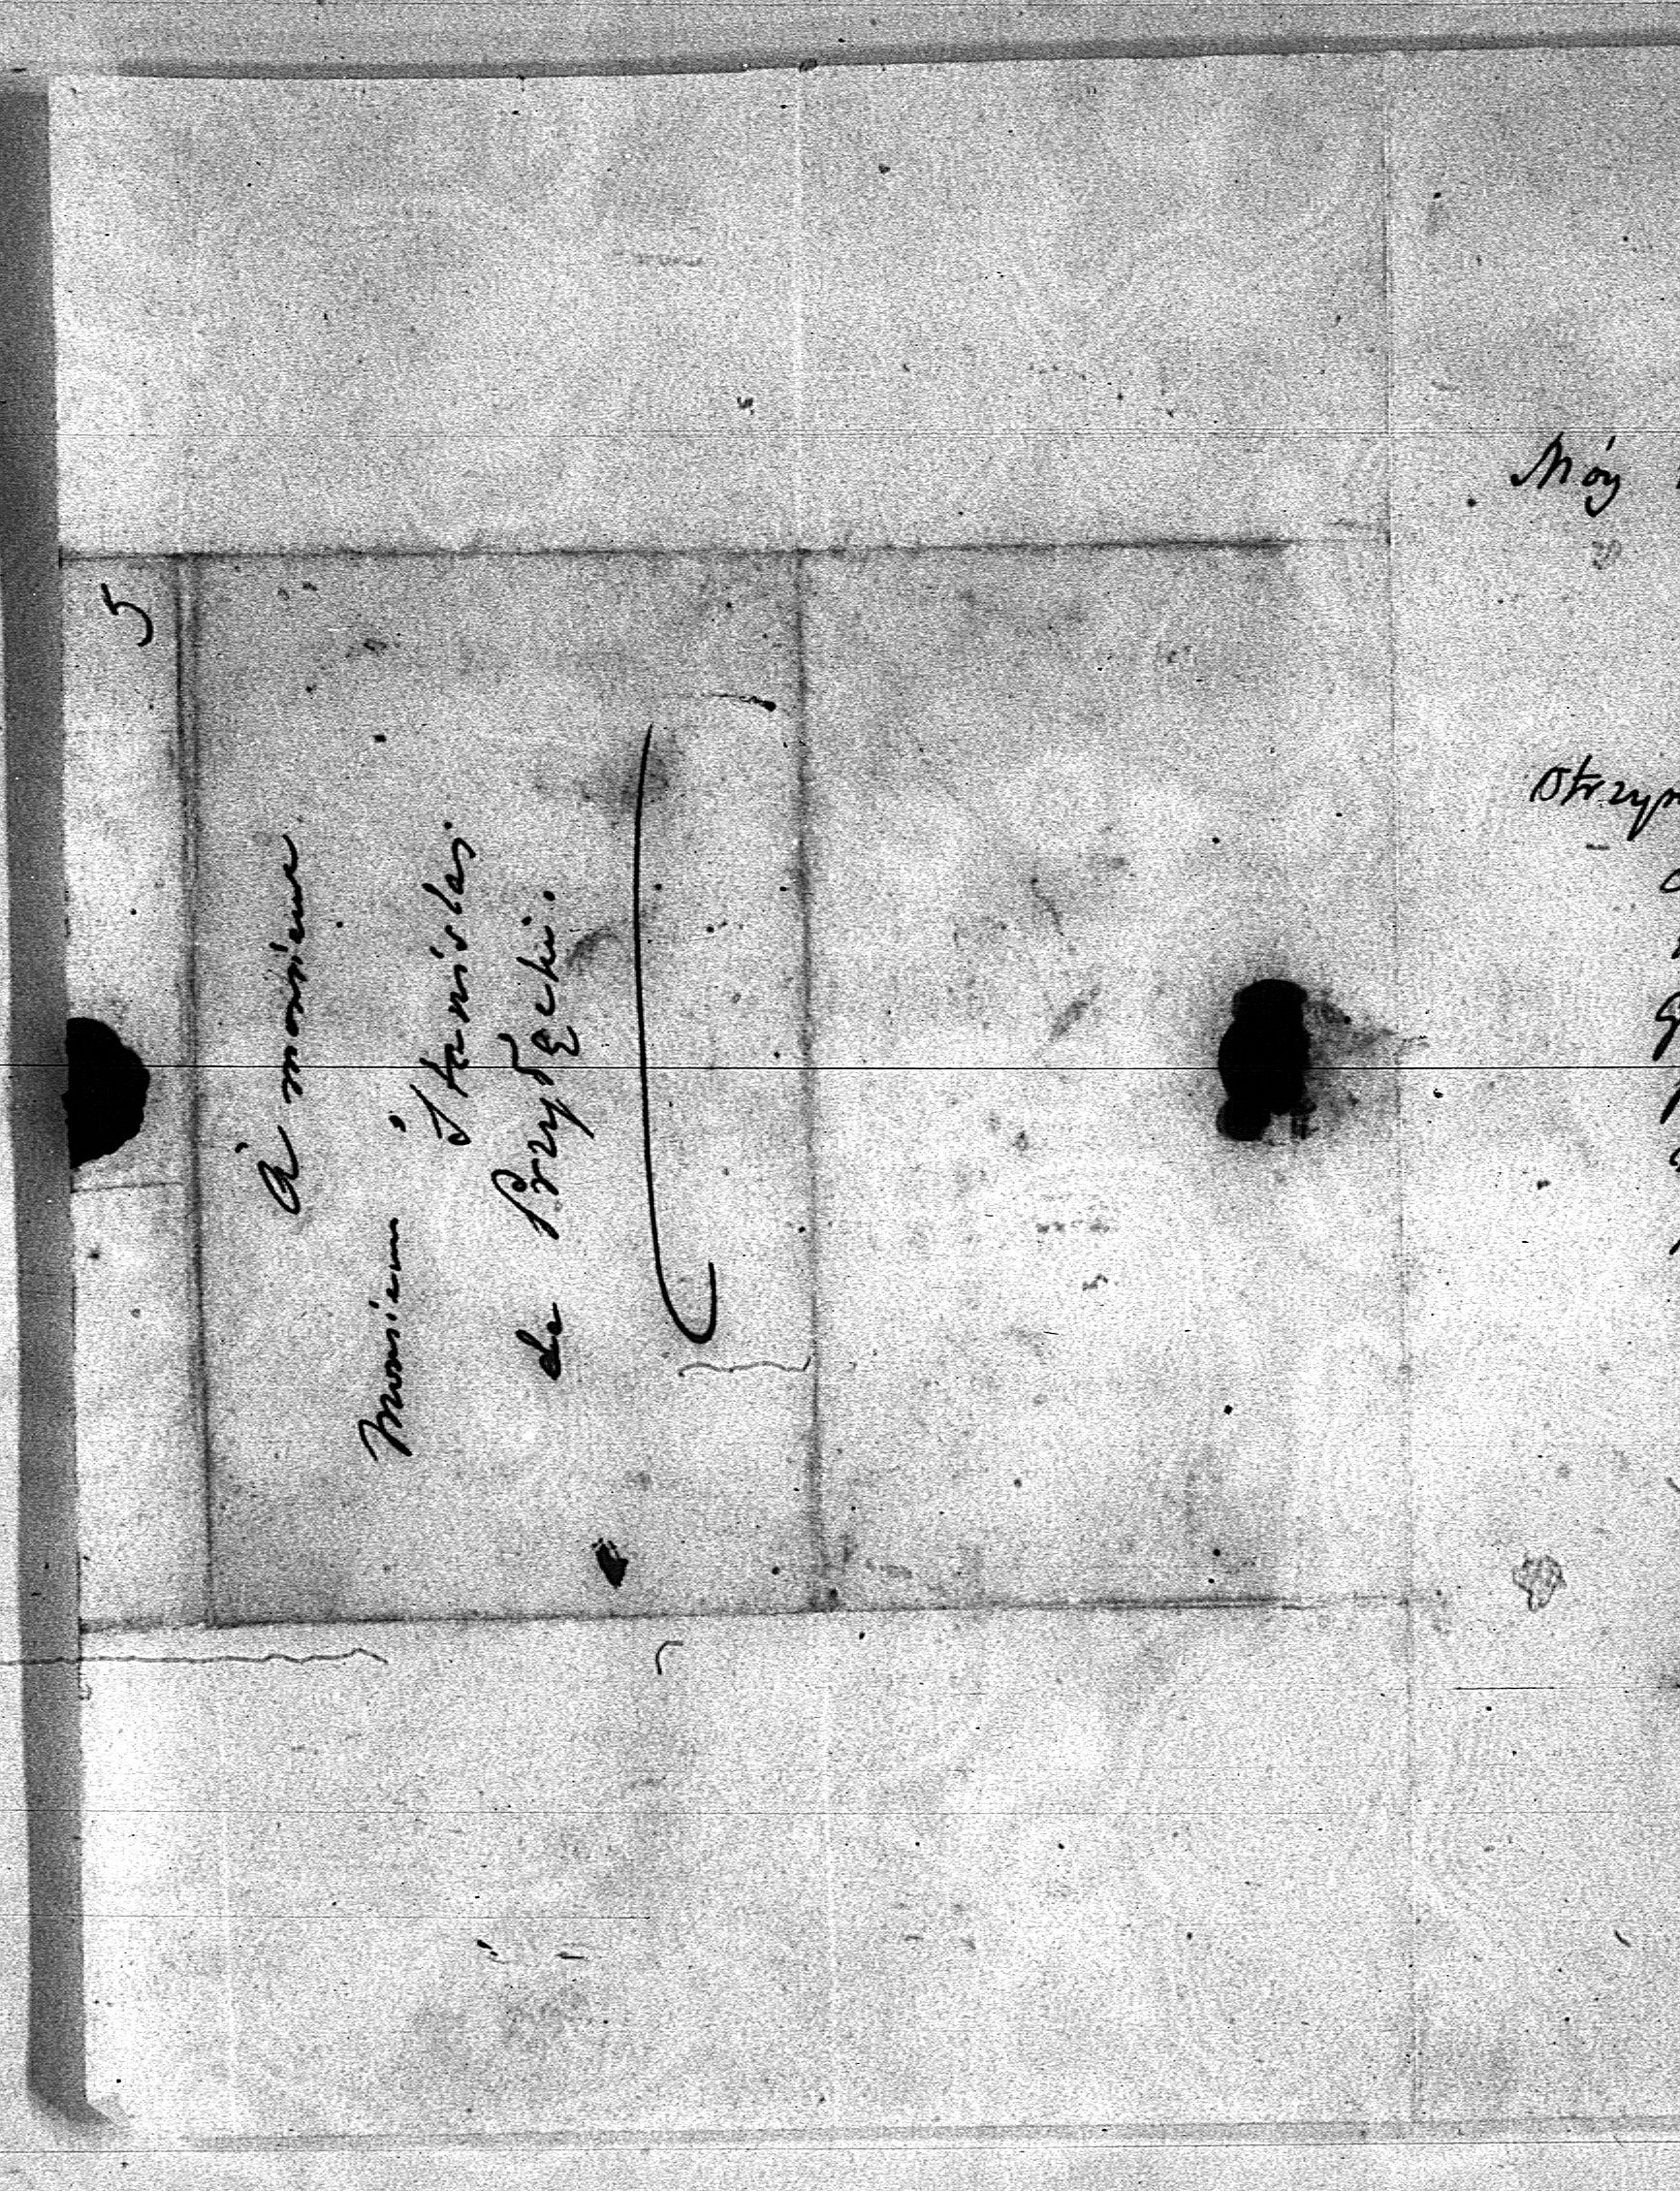 5
à monsieur
Monsieur Stanislas
de Przyłęcki.
Móy
Otrzym